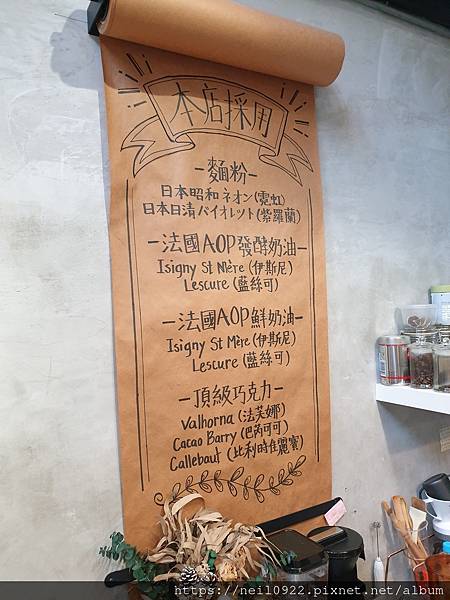 本店採用
-麵粉-
日本昭和ネオン(霓虹)
日本日清バイオレット(紫羅蘭)
-法國AOP發酵奶油-
Isigny St Mère (伊斯尼)
Lescure (藍絲可)
-法國AOP鮮奶油-
Isigny St Mère (伊斯尼)
Lescure (藍絲可)
-頂級巧克力-
Valhorna (法芙娜)
Cacao Barry (巴芮可可)
Callebaut (比利時佳麗寶)
https://neil0922.pixnet.net/album